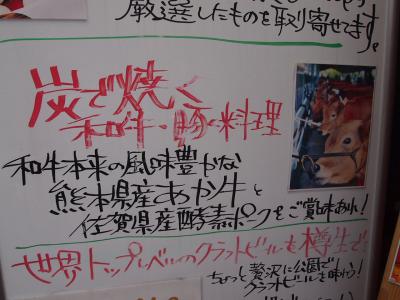 厳選したものを取り寄せてます。
炭で焼く
和牛・豚・料理
和牛本来の風味豊かな
熊本県産あか牛と
佐賀県産酵素ポークをご賞味あれ!
世界トップレベルのクラフトビールも樽生で
ちょっと贅沢に公園で
クラフトビールを味わう!